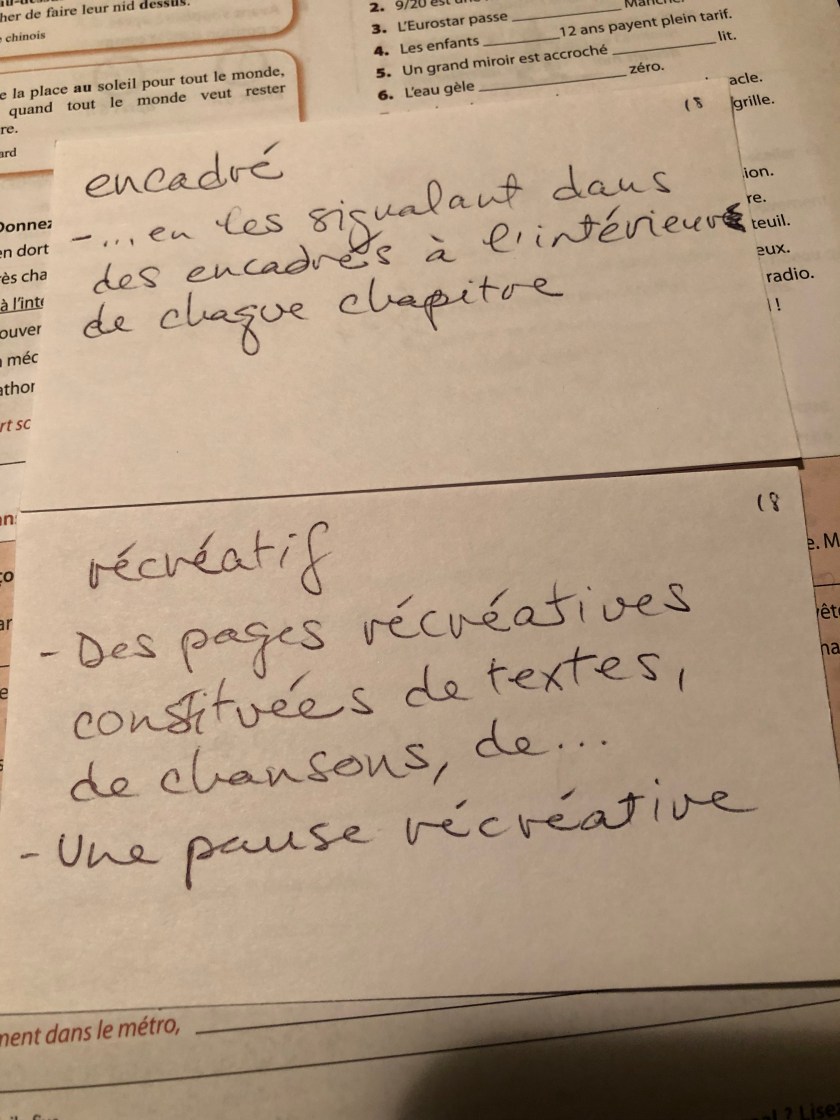 her de faire leur nid dessus.
chinois
e la place au soleil pour tout le monde,
quand tout le monde veut rester
re.
ard
2. 9/20 est
3. L'Eurostar passe ____________ Manche.
4. Les enfants __________ 12 ans payent plein tarif.
5. Un grand miroir est accroché ______________ lit.
6. L'eau gèle ____________________ zéro.
acle.
grille.
ion.
re.
teuil.
eux.
radio.
!
Donnez
en dort
ès cha
à l'inté
ouver
méc
athor
rt sc
18
encadré
-... en les signalant dans
des encadrés à l'intérieur
de chaque chapitre
18
récréatif
- Des pages récréatives
constituées de textes,
de chansons, de...
- Une pause récréative
e. M
ment dans le métro, ____________________
? Lisez